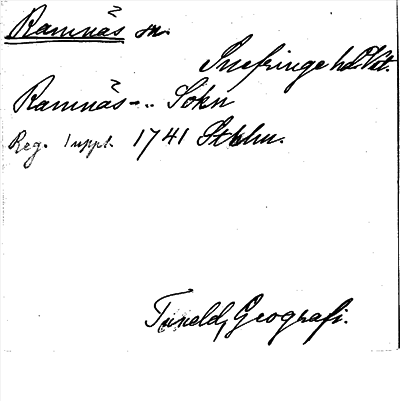 Ramnäs sn.
Snefringe hd Vstm.
Ramnäs-.. Sokn
Reg. 1 uppl. 1741 Sthlm.
Tunelds Geografi.